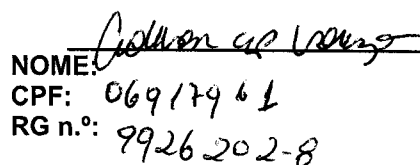 NOME:
CPF: 06917961
RG n.º: 9926202-8